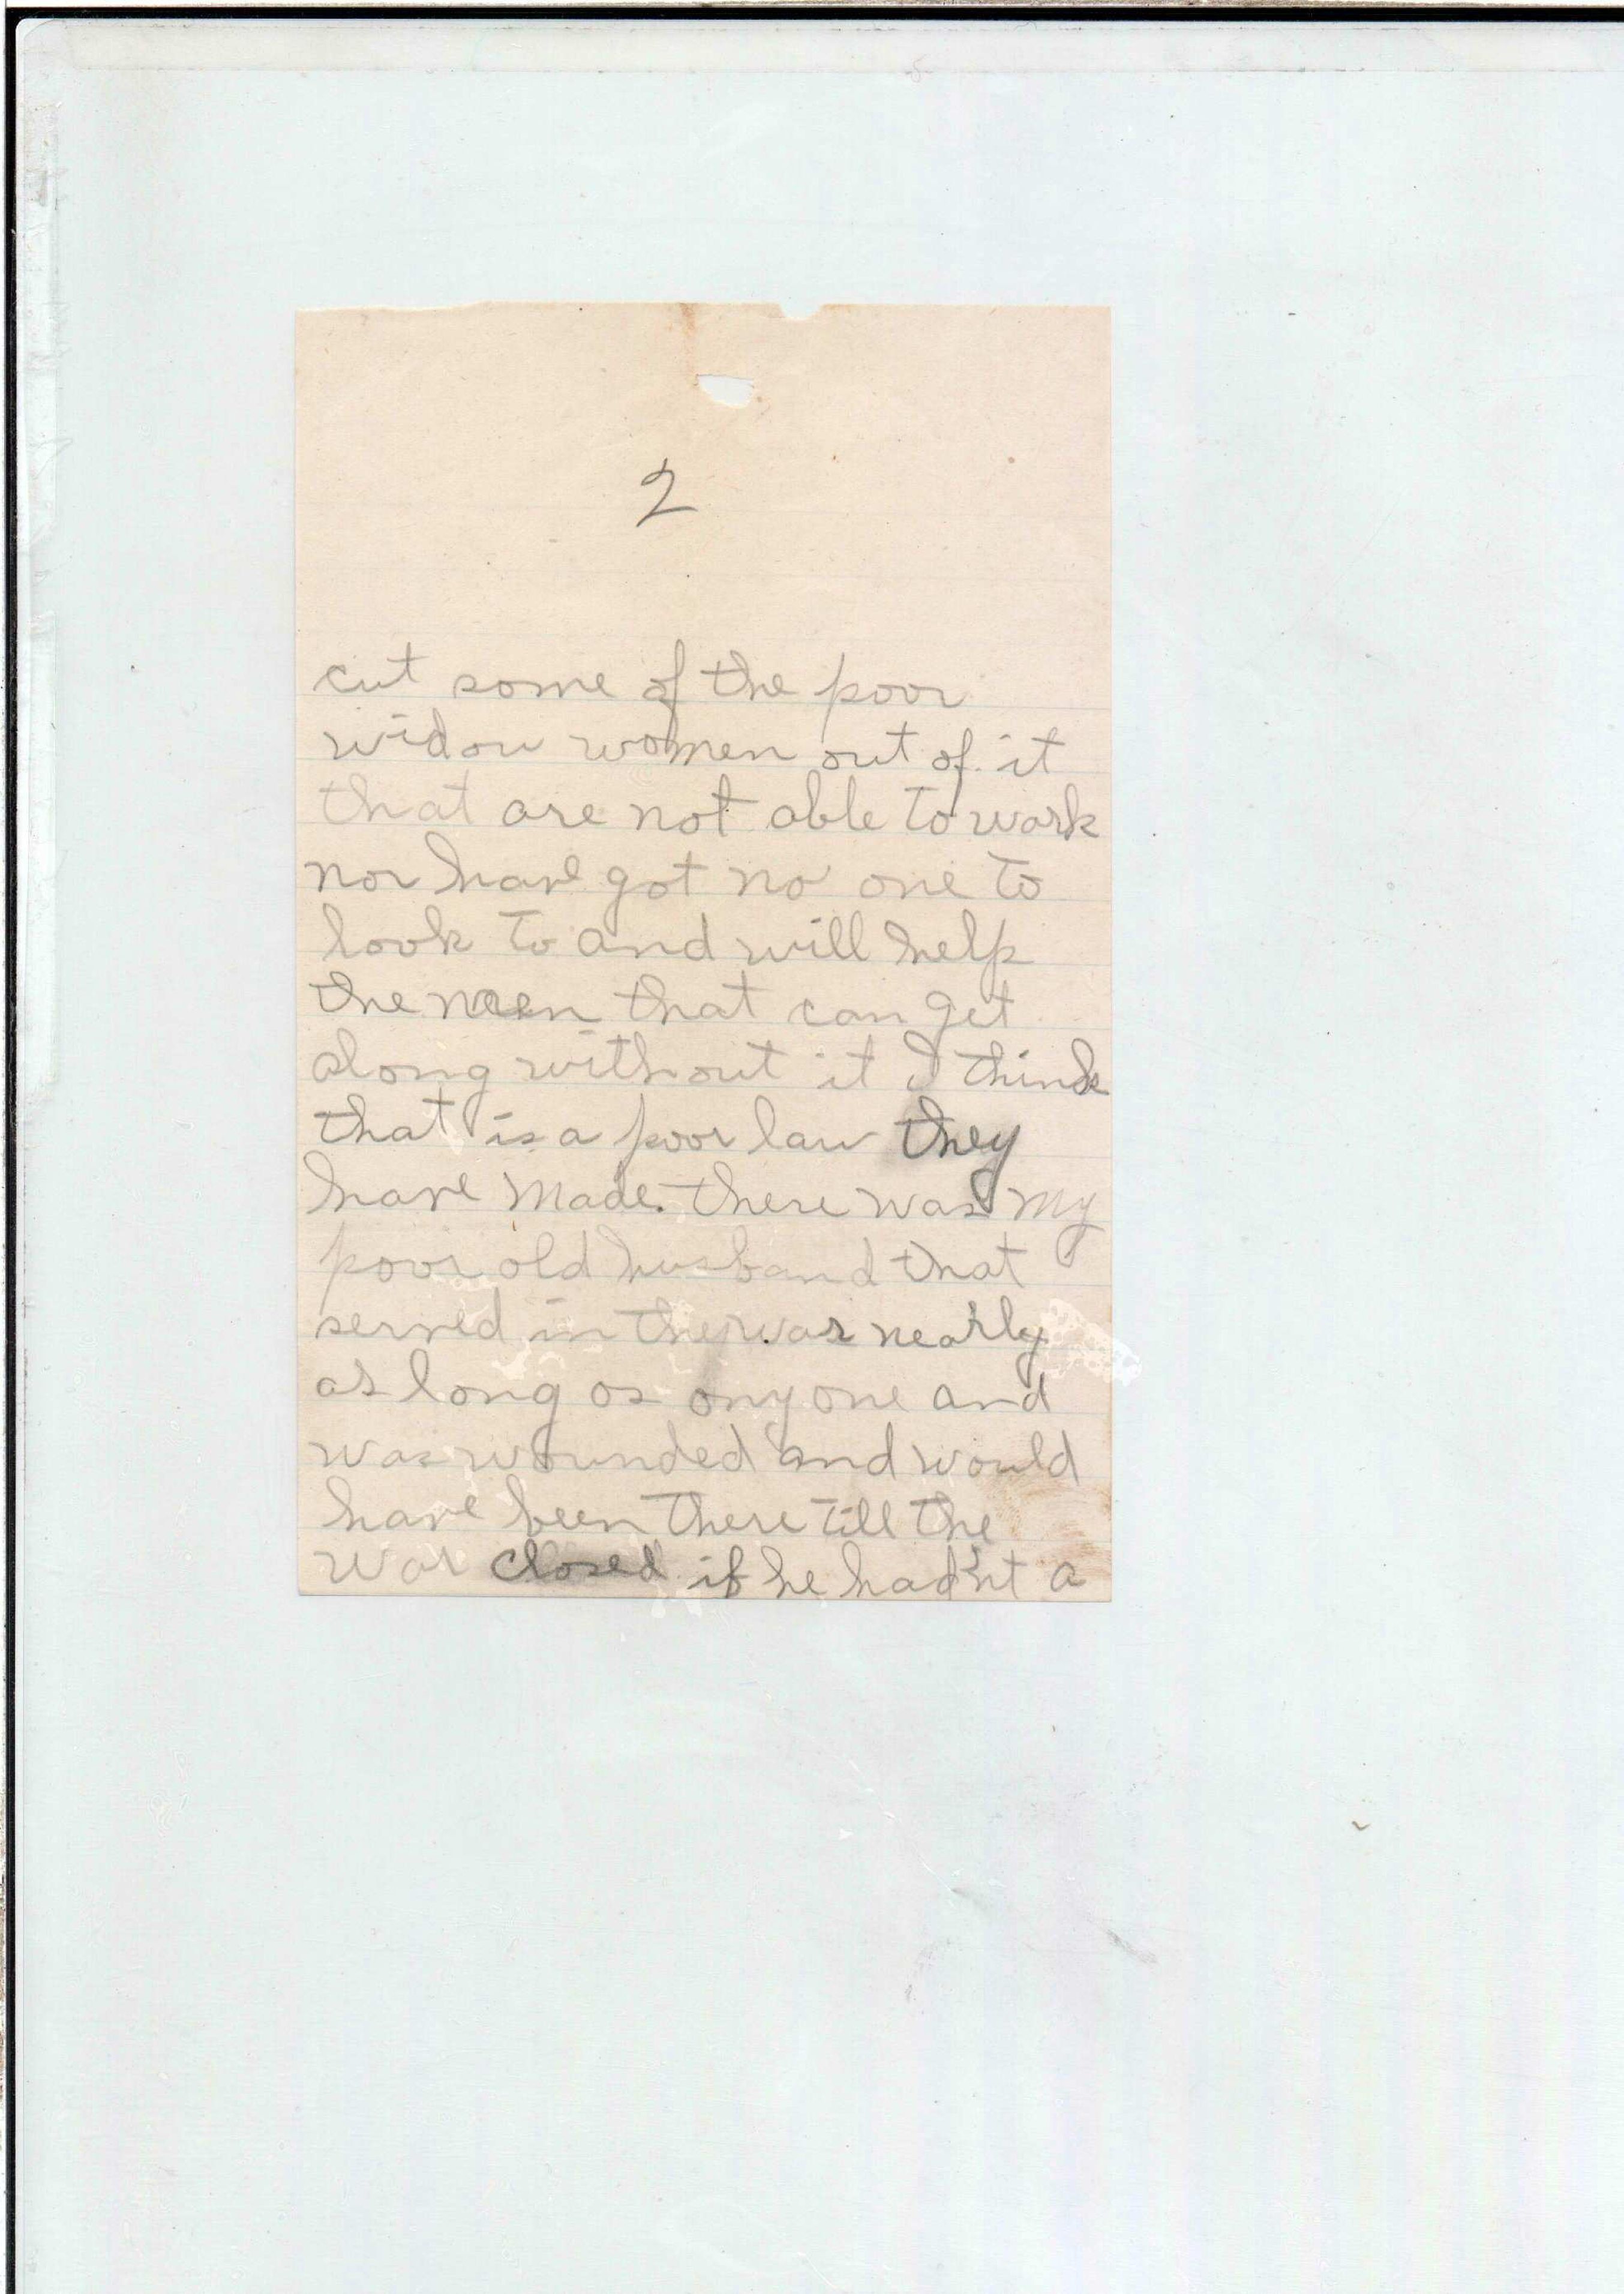 2
cut some of the poor
widow women out of it
that are not able to work
nor have got no one to
look to and will help
the men that can get
along without it I think
that is a poor law they
have made. there was my
poor old husband that
served in the war nearly
as long as any one and
was wounded and would
have been there till the
war closed if he hadn't a